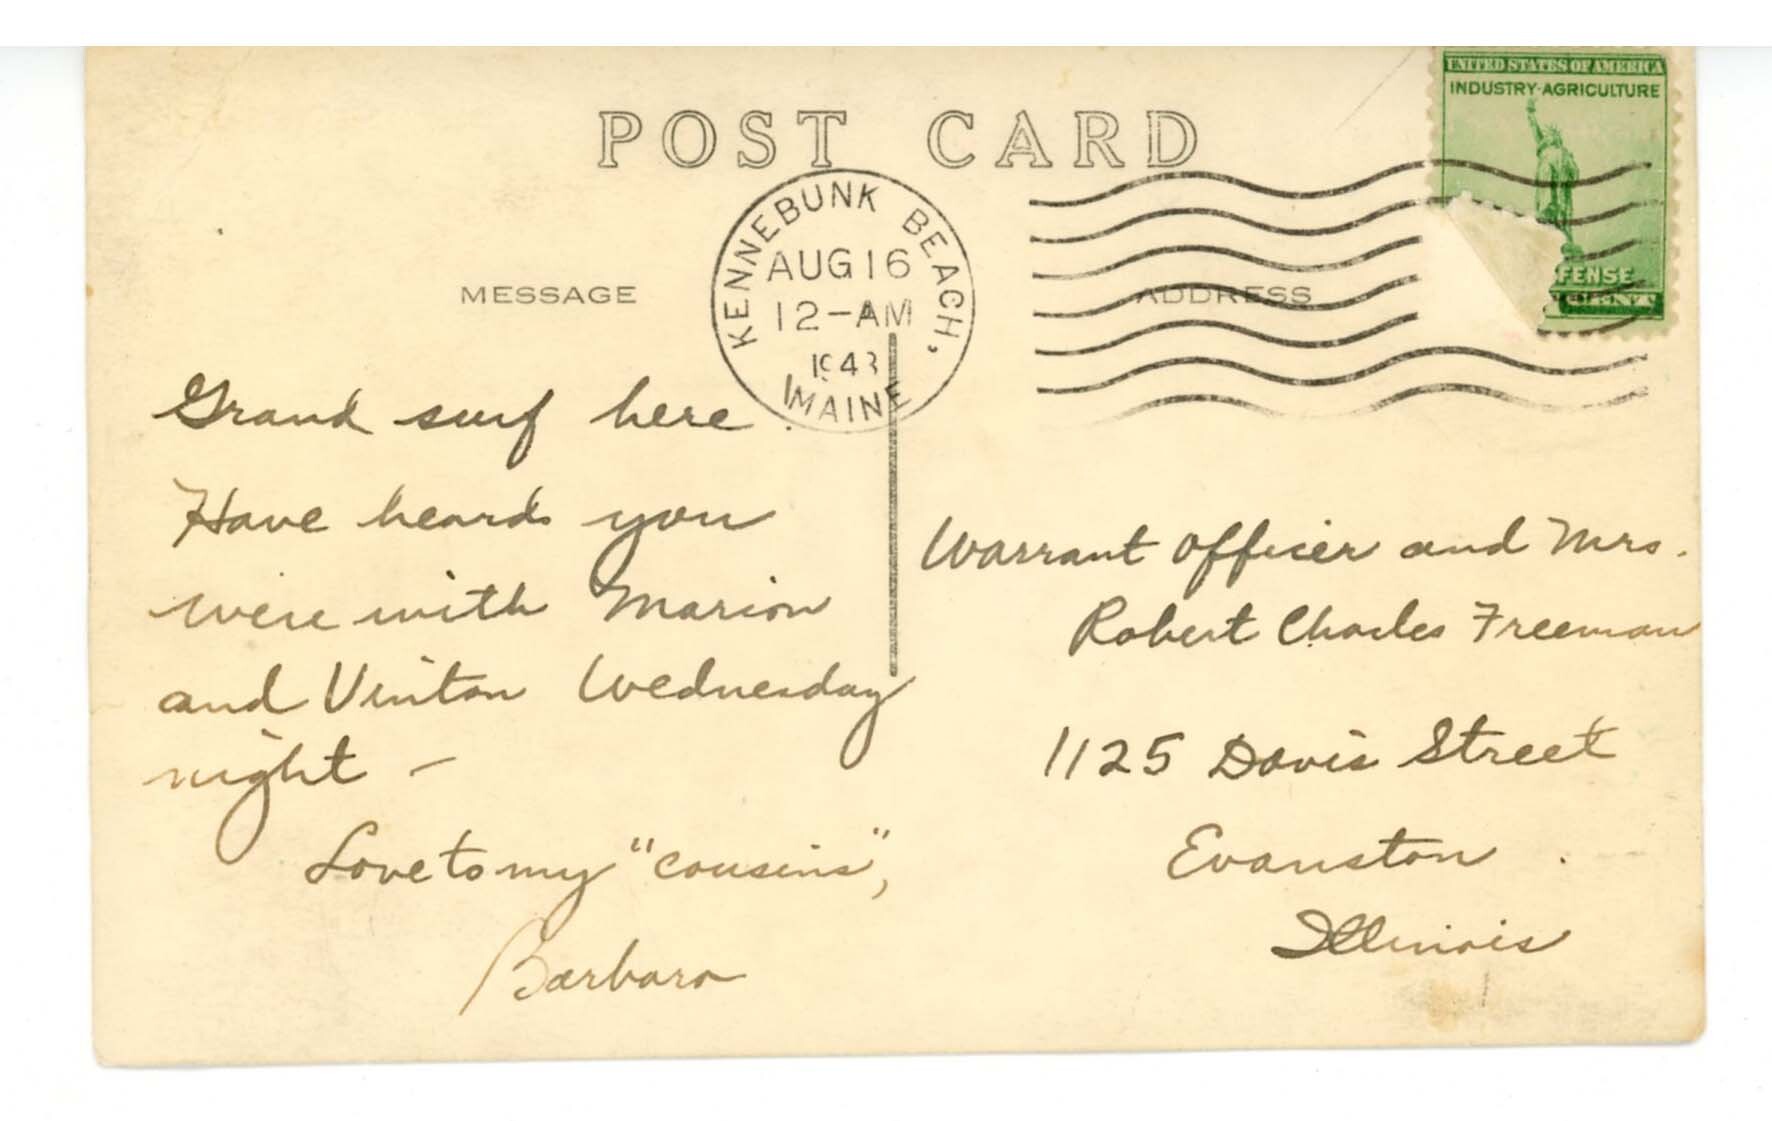 UNITED STATES OF AMERICA
INDUSTRY-AGRICULTURE
FENSE
POST CARD
KENNEBUNK BEACH,
AUG 16
12-AM
1943
MAINE
MESSAGE
ADDRESS
Grand surf here.
Have heard you
were with Marion
and Vinton Wednesday
night -
Love to my "cousins",
Barbara
Warrant Officer and Mrs.
Robert Charles Freeman
1125 Davis Street
Evanston
Illinois